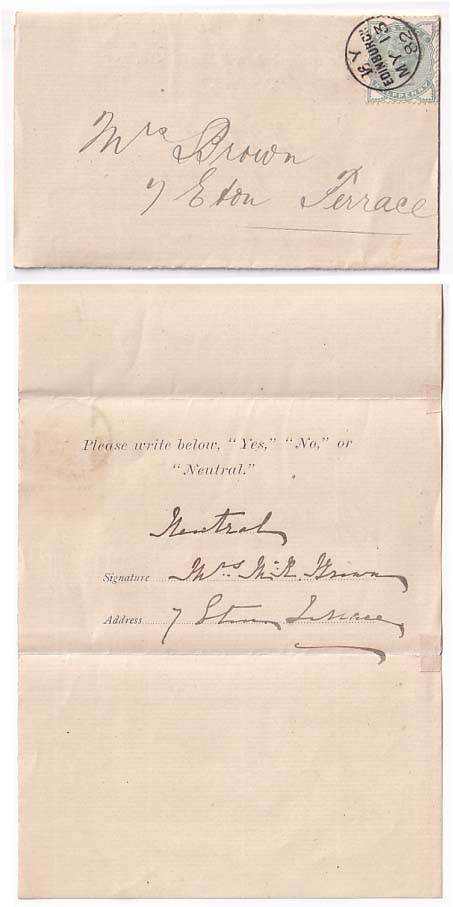 16 Y
EDINBURGH
MY 13
82
HALFPENNY
Mrs Brown
7 Eton Terrace
Please write below, "Yes," "No," or
"Neutral."
Neutral
Signature Mrs Brown
Address 7 Eton Terrace